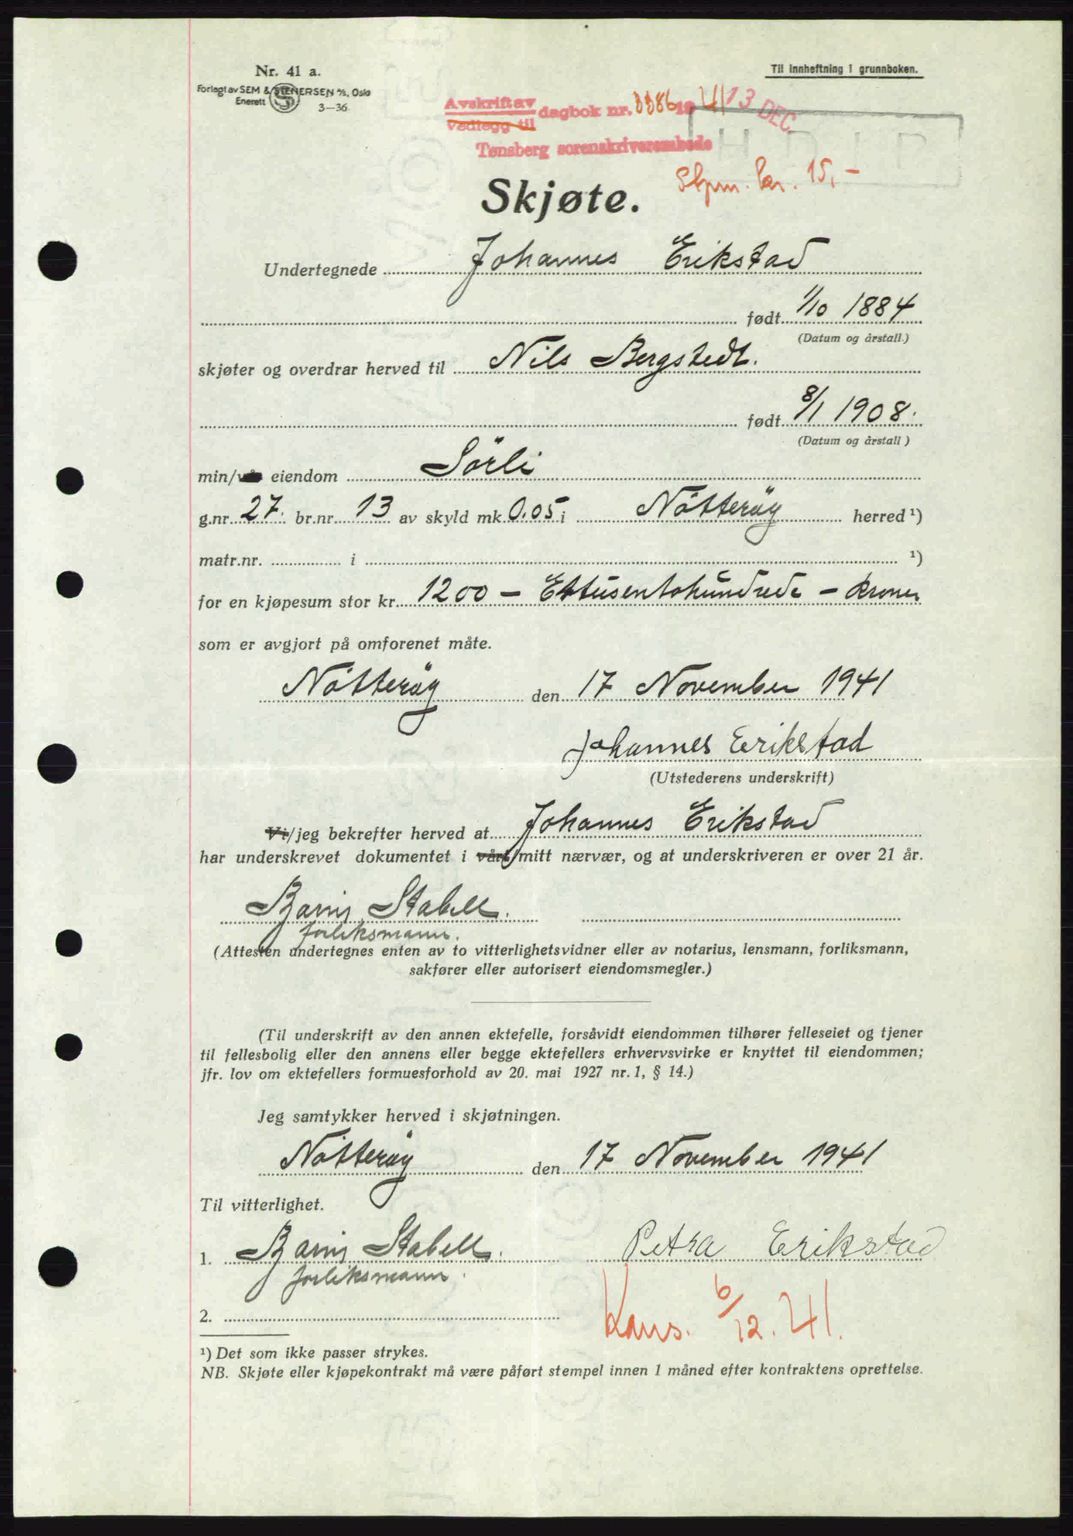 Nr. 41 a.
Forlagt av SEM & STENERSEN A/S, Oslo
Enerett 3-36
Til innheftning i grunnboken.
Avskrift av
Vedlegg til
dagbok nr. 3386 19 41 13 DEC
Tønsberg sorenskriverembede
Stpm. kr. 15,-
Skjøte.
Undertegnede Johannes Erikstad
født 1/10 1884
(Datum og årstall.)
skjøter og overdrar herved til Nils Bergstedt.
født 8/1 1908.
(Datum og årstall)
min/vår eiendom Sörli
g.nr. 27. br.nr. 13 av skyld mk. 0.05 i Nötteröy herred ¹)
matr.nr. i ¹)
for en kjøpesum stor kr. 1200 – Ettusentohundrede – kroner
som er avgjort på omforenet måte.
Nötteröy den 17 November 1941
Johannes Erikstad
(Utstederens underskrift)
Vi/jeg bekrefter herved at Johannes Erikstad
har underskrevet dokumentet i vårt/mitt nærvær, og at underskriveren er over 21 år.
Stabell.
forliksmann.
(Attesten undertegnes enten av to vitterlighetsvidner eller av notarius, lensmann, forliksmann,
sakfører eller autorisert eiendomsmegler.)
(Til underskrift av den annen ektefelle, forsåvidt eiendommen tilhører felleseiet og tjener
til fellesbolig eller den annens eller begge ektefellers erhvervsvirke er knyttet til eiendommen;
jfr. lov om ektefellers formuesforhold av 20. mai 1927 nr. 1, § 14.)
Jeg samtykker herved i skjøtningen.
Nötteröy den 17 November 1941
Til vitterlighet.
1. Stabell. Petra Erikstad
forliksmann.
Kans. 6/12. 41.
2.
¹) Det som ikke passer strykes.
NB. Skjøte eller kjøpekontrakt må være påført stempel innen 1 måned efter kontraktens oprettelse.